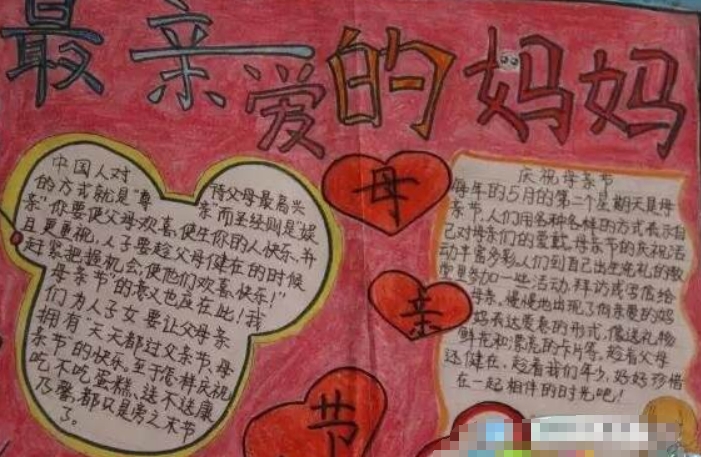 最亲爱的妈妈
中国人对 待父母最高兴
的方式就是“尊 亲”而圣经则是“娱
亲”你要使父母欢喜,使生你的人快乐,并
且更重视,人子要趁父母健在的时候
赶紧把握机会,使他们欢喜快乐!”
母亲节的意义也应在此!我
们为人子女要让父母亲
拥有天天都过父亲节、母
亲节的快乐,至于怎样庆祝
吃不吃蛋糕、送不送康
乃馨,都只是旁之末节
了。
母
亲
节
庆祝母亲节
每年的5月的第二个星期天是母
亲节,人们用各种各样的方式表示自
己对母亲们的爱戴,母亲节的庆祝活
动丰富多彩,人们到自己出生洗礼的教
堂里参加一些活动,拜访或写信给
母亲,慢慢地出现了向亲爱的妈
妈表达爱意的形式,像送礼物
鲜花和漂亮的卡片等,趁着父母
还健在,趁着我们年少,好好珍惜
在一起相伴的时光吧!